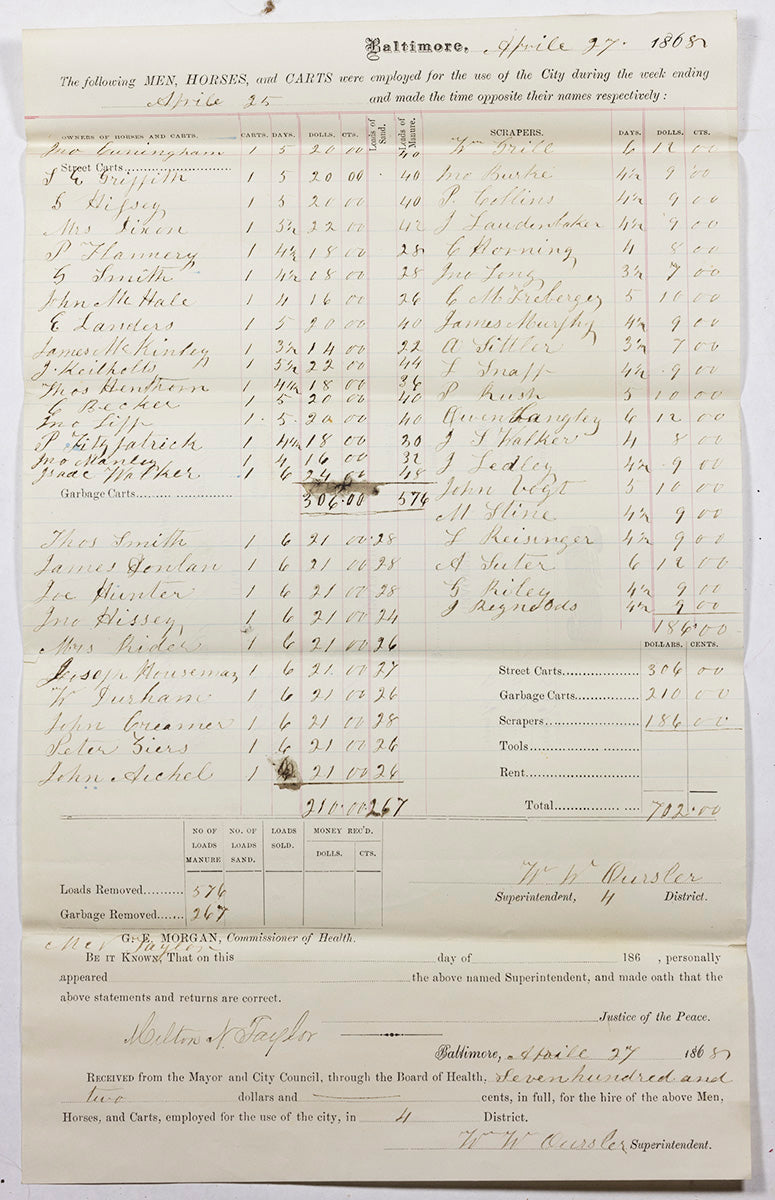 Baltimore, Aprile 27. 1868
The following MEN, HORSES, and CARTS were employed for the use of the City during the week ending
Aprile 25 and made the time opposite their names respectively:
OWNERS OF HORSES AND CARTS. CARTS. DAYS. DOLLS. CTS. Loads of Sand. Loads of Manure.
Jno Cuningham 1 5 20 00 40
Street Carts
S E Griffith 1 5 20 00 40
S Hissey 1 5 20 00 40
Mrs Dixon 1 5½ 22 00 42
P Flannery 1 4½ 18 00 28
G Smith 1 4½ 18 00 28
John McHale 1 4 16 00 26
E Landers 1 5 20 00 40
James McKinley 1 3½ 14 00 22
J Keitholts 1 5½ 22 00 44
Thos Henthorn 1 4½ 18 00 36
E Becker 1 5 20 00 40
Jno Lipp 1 5 20 00 40
P Fitzpatrick 1 4½ 18 00 30
Jno Manley 1 4 16 00 32
Isaac Walker 1 6 24 00 48
Garbage Carts 306.00 576
Thos Smith 1 6 21 00 28
James Donlan 1 6 21 00 28
Joe Hunter 1 6 21 00 28
Jno Hissey 1 6 21 00 24
Mrs Rider 1 6 21 00 26
Joseph Houseman 1 6 21 00 27
W Durham 1 6 21 00 26
John Creamer 1 6 21 00 28
Peter Ziers 1 6 21 00 26
John Aichel 1 6 21 00 26
210.00 267
SCRAPERS. DAYS. DOLLS. CTS.
Wm Grill 6 12 00
Jno Burke 4½ 9 00
P. Collins 4½ 9 00
J Laudenbaker 4½ 9 00
C Horning 4 8 00
Jno Long 3½ 7 00
C M Freberger 5 10 00
James Murphy 4½ 9 00
A Sittler 3½ 7 00
L Snapp 4½ 9 00
P Rush 5 10 00
Owen Langley 6 12 00
J S Walker 4 8 00
J Ledley 4½ 9 00
John Vogt 5 10 00
M Stine 4½ 9 00
L Reisinger 4½ 9 00
A Suter 6 12 00
G Riley 4½ 9 00
J Reynolds 4½ 9 00
186.00
DOLLARS. CENTS.
Street Carts 306 00
Garbage Carts 210 00
Scrapers 186 00
Tools
Rent
Total 702.00
NO OF LOADS MANURE NO. OF LOADS SAND. LOADS SOLD. MONEY REC'D. DOLLS. CTS.
Loads Removed 576
Garbage Removed 267
W W Oursler
Superintendent, 4 District.
G. E. MORGAN, Commissioner of Health.
Taylor
BE IT KNOWN, That on this day of 186 , personally
appeared the above named Superintendent, and made oath that the
above statements and returns are correct.
Justice of the Peace.
Milton N Taylor
Baltimore, Aprile 27 1868
RECEIVED from the Mayor and City Council, through the Board of Health, Seven hundred and
two dollars and cents, in full, for the hire of the above Men,
Horses, and Carts, employed for the use of the city, in 4 District.
W W Oursler Superintendent.